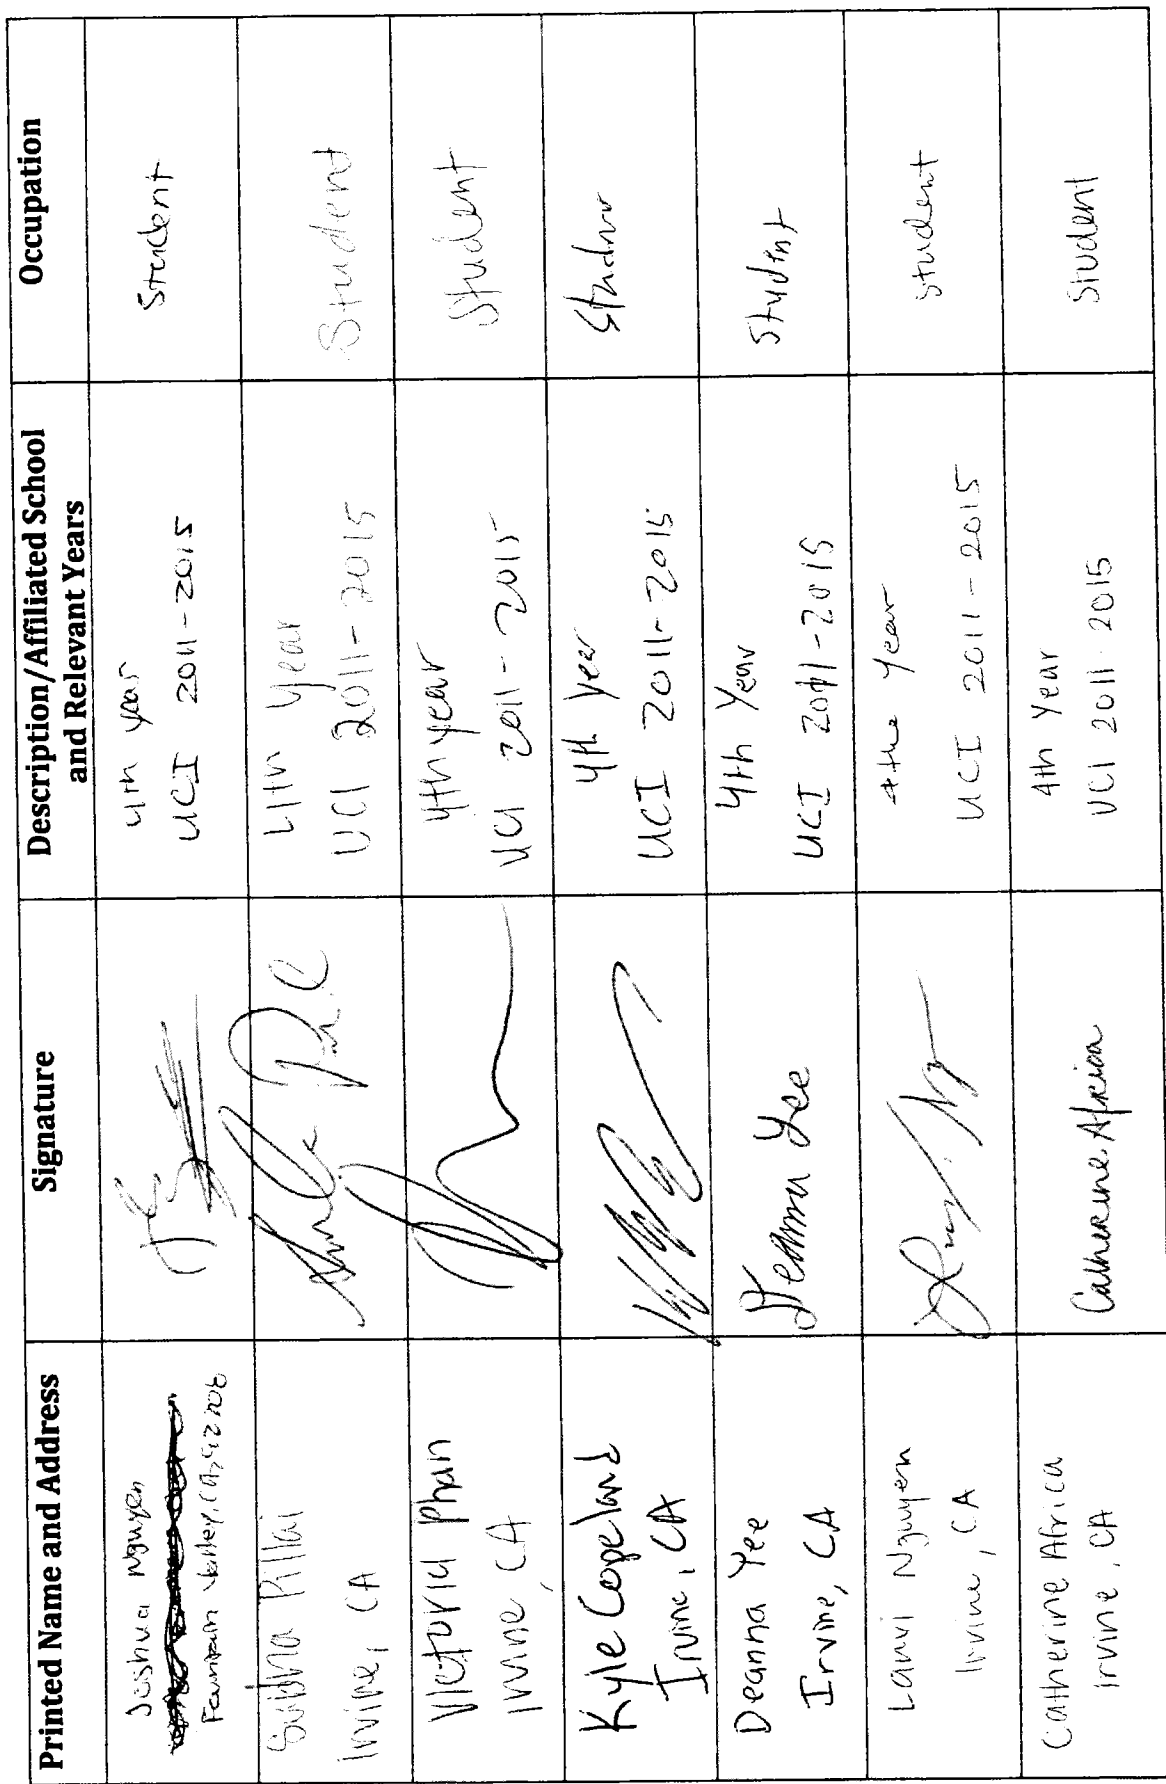 Printed Name and Address
Signature
Description/Affiliated School
and Relevant Years
Occupation
Joshua Nguyen
Fountain Valley, CA, 92708
4th year
UCI 2011-2015
Student
Pillai
Irvine, CA
4th year
UCI 2011-2015
Student
Victoria Phan
Irvine, CA
4th year
UCI 2011-2015
Student
Kyle Copeland
Irvine, CA
4th year
UCI 2011-2015
Deanna Yee
Irvine, CA
Deanna Yee
4th Year
UCI 2011-2015
Student
Lauvi Nguyen
Irvine, CA
4the year
UCI 2011-2015
student
Catherine Africa
Irvine, CA
Catherine Africa
4th Year
UCI 2011-2015
Student